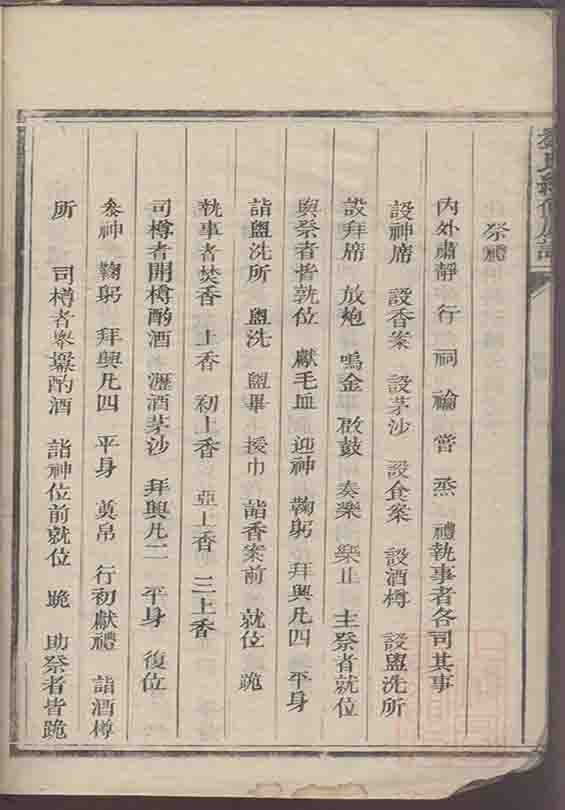 祭禮
內外肅靜 行 祠 禴 嘗 烝 禮執事者各司其事
設神席 設香案 設茅沙 設食案 設酒樽 設盥洗所
設拜席 放炮 鳴金 啟鼓 奏樂 樂止 主祭者就位
與祭者皆就位 獻毛血 迎神 鞠躬 拜興凡四 平身
詣盥洗所 盥洗 盥畢 授巾 詣香案前 就位 跪
執事者焚香 上香 初上香 亞上香 三上香
司樽者開樽酌酒 瀝酒茅沙 拜興凡二 平身 復位
參神 鞠躬 拜興凡四 平身 奠帛 行初獻禮 詣酒樽
所 司樽者舉羃酌酒 詣神位前就位 跪 助祭者皆跪